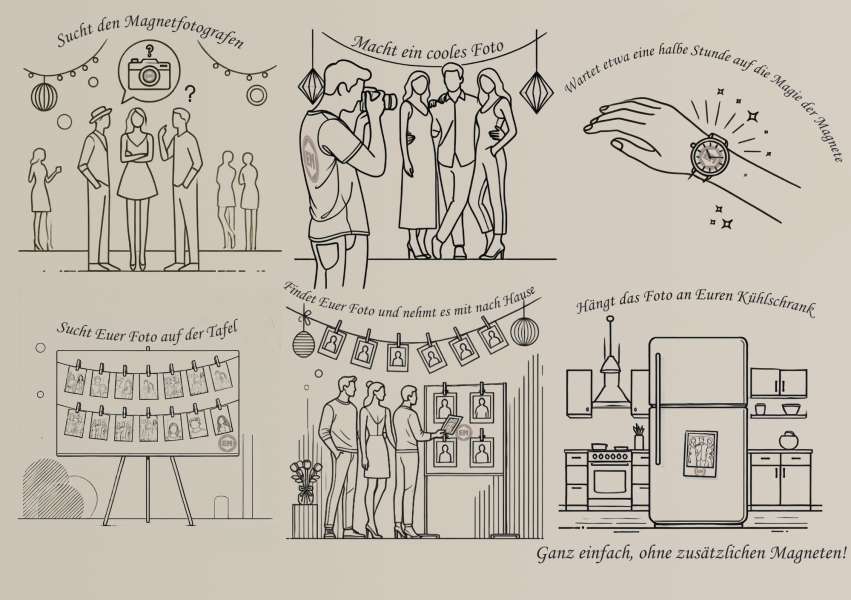 Sucht den Magnetfotografen
?
?
Macht ein cooles Foto
EM
Wartet etwa eine halbe Stunde auf die Magie der Magnete
Sucht Euer Foto auf der Tafel
EM
Findet Euer Foto und nehmt es mit nach Hause
EM
Hängt das Foto an Euren Kühlschrank
EM
Ganz einfach, ohne zusätzlichen Magneten!